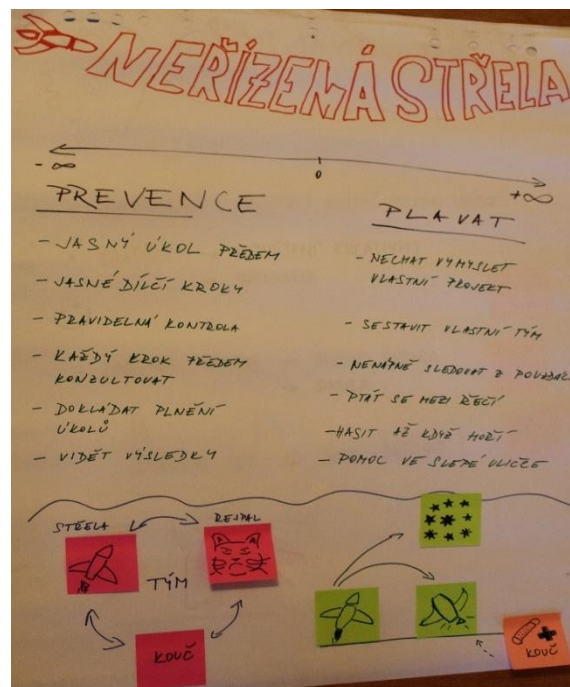 NEŘÍZENÁ STŘELA
- ∞
0
+∞
PREVENCE
- JASNÝ ÚKOL PŘEDEM
- JASNÉ DÍLČÍ KROKY
- PRAVIDELNÁ KONTROLA
- KAŽDÝ KROK PŘEDEM
KONZULTOVAT
- DOKLÁDAT PLNĚNÍ
ÚKOLŮ
- VIDĚT VÝSLEDKY
PLAVAT
- NECHAT VYMYSLET
VLASTNÍ PROJEKT
- SESTAVIT VLASTNÍ TÝM
- NENÁPNĚ SLEDOVAT Z
- PTÁT SE MEZI ŘEČÍ
- HASIT AŽ KDYŽ HOŘÍ
- POMOC VE SLEPÉ ULIČCE
STŘELA
REJPAL
TÝM
KOUČ
KOUČ